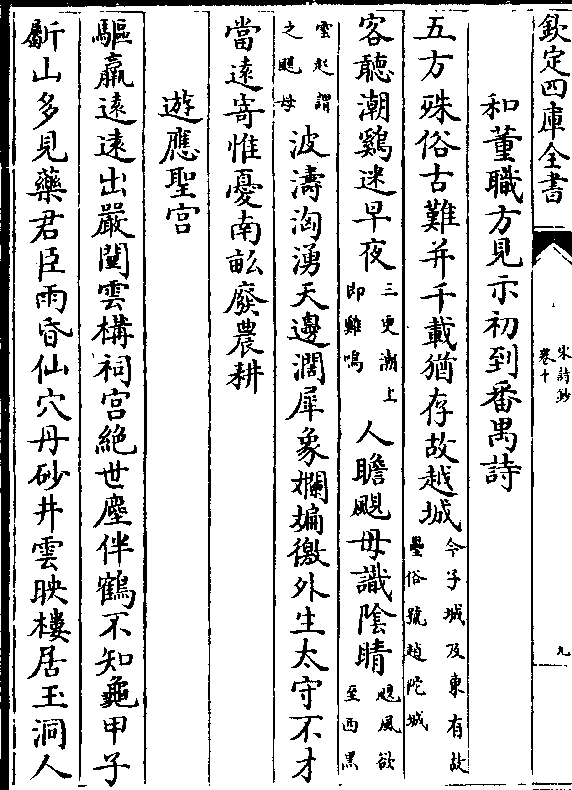 欽定四庫全書
宋詩鈔
卷十
九
和董職方見示初到番禺詩
五方殊俗古難并千載猶存故越城今子城及東有故壘俗號趙陀城
客聽潮鷄迷早夜三更潮上即雞鳴人瞻颶母識陰晴颶風欲至西黑
雲起謂之颶母波濤洶湧天邊濶犀象斕斒徼外生太守不才
當遠寄惟憂南畝廢農耕
遊應聖宫
驅羸逺逺出嚴闉雲構祠宫絶世塵伴鶴不知龜甲子
斸山多見藥君臣雨昏仙穴丹砂井雲映樓居玉洞人